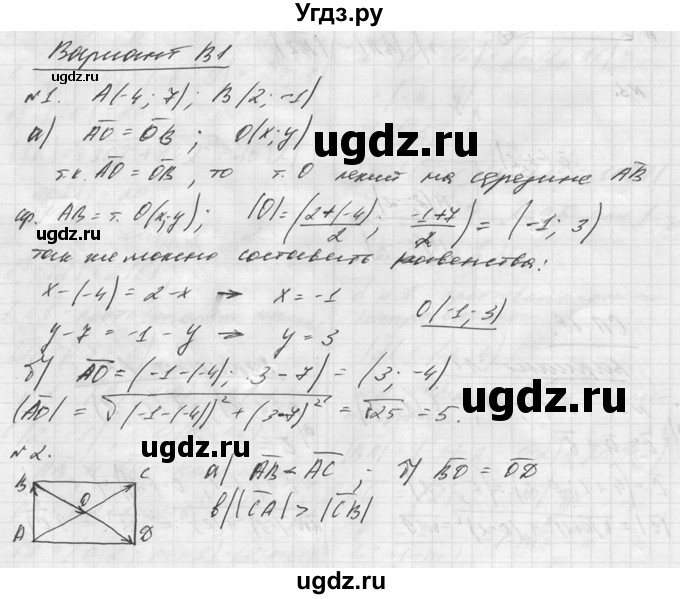 Угдз.ру
Вариант В1
ugdz.ru
№1. A(-4; 7); B(2; -1)
а) AO = OB; O(x; y)
ugdz.ru
т.к. AO = OB, то т. O лежит на середине AB
ср. AB = т. O(x; y); |O| = (2+(-4)/2; -1+7/2) = (-1; 3)
ugdz.ru
так же можно составить равенства:
x-(-4) = 2-x → x = -1
O(-1; 3)
y-7 = -1-y → y = 3
б) AO = (-1-(-4); 3-7) = (3; -4)
ugdz.ru
|AO| = √(-1-(-4))² + (3-7)² = √25 = 5.
№2.
а) AB < AC; б) BO = OD
B C O A D
в) |CA| > |CB|
ugdz.ru
ugdz.ru